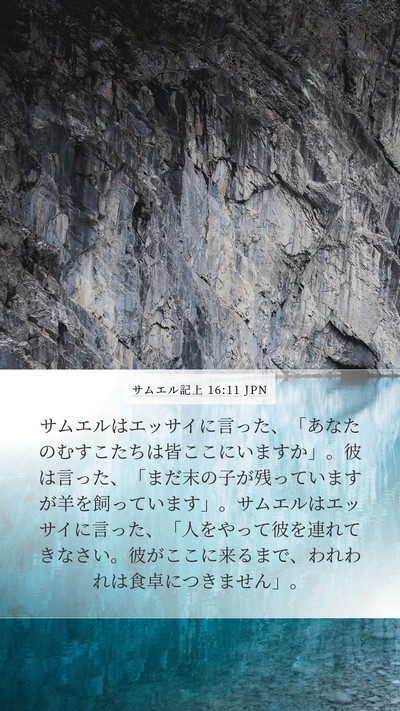 サムエル記上 16:11 JPN
サムエルはエッサイに言った、「あなた
のむすこたちは皆ここにいますか」。彼
は言った、「まだ末の子が残っています
が羊を飼っています」。サムエルはエッ
サイに言った、「人をやって彼を連れて
きなさい。彼がここに来るまで、われわ
れは食卓につきません」。